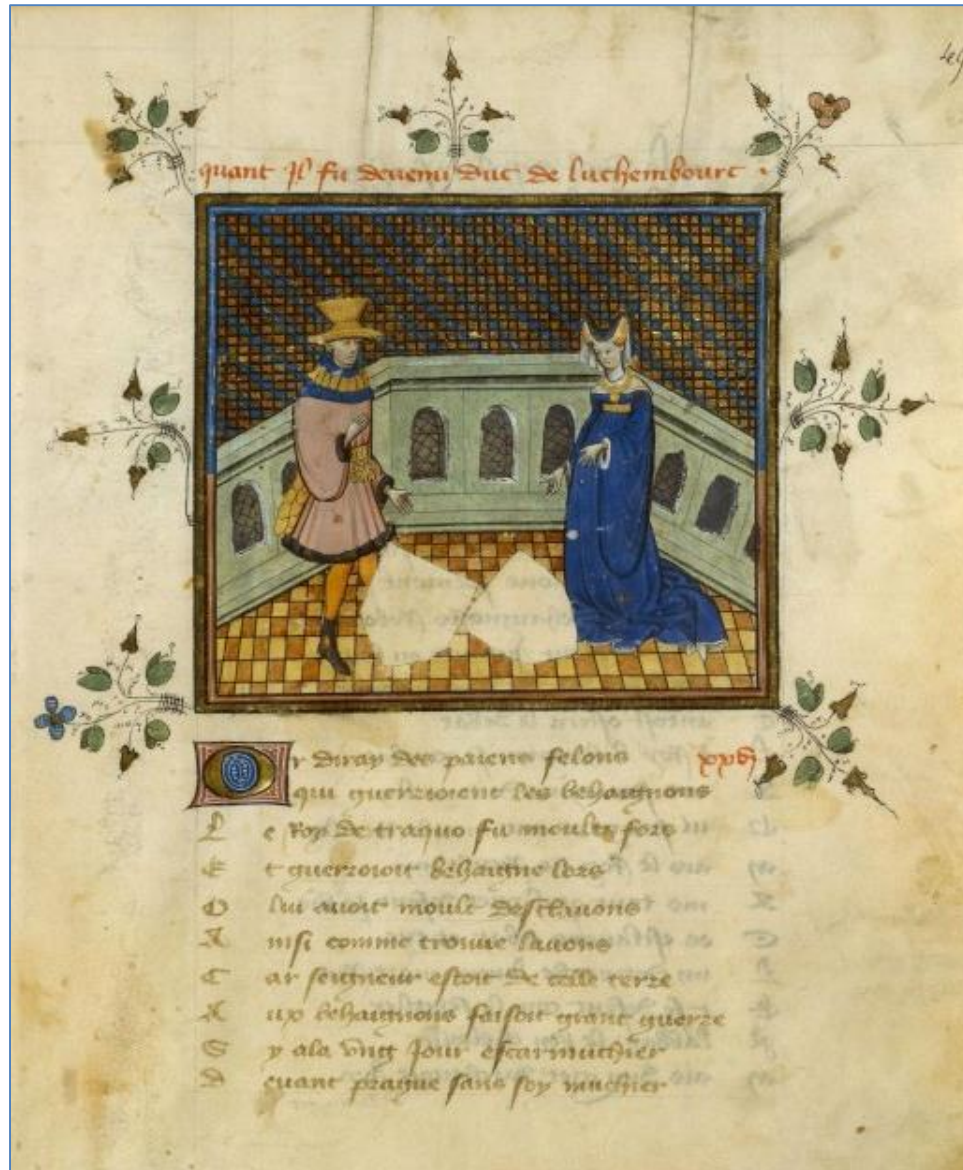 quant Il fu devenu duc de luchembourc .
Or diray des paiens felons
qui guerrioient les behaignons
Le Roy de traquo fu moules fors
Et guerrioioit behaigne lors
O lui avoit moult desclavons
Ainsi comme trouve lavons
Car seigneur estoit de celle terre
Aux behaignons faisoit grant guerre
Sy ala ung Jour escarmuchier
Devant prague sans soy muchier